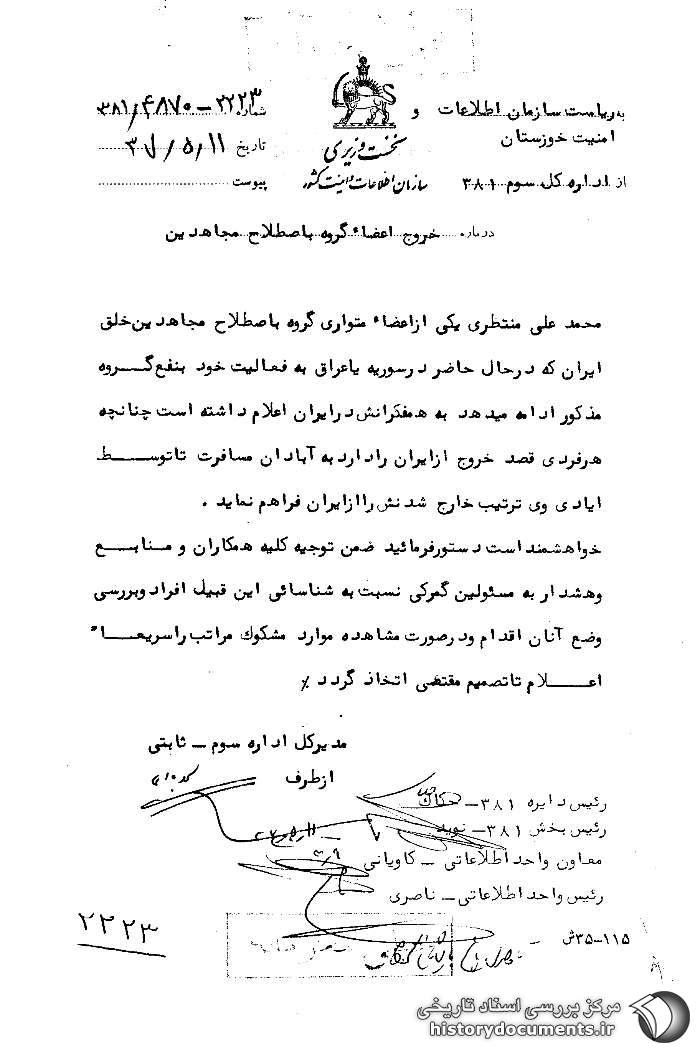 به ریاست سازمان اطلاعات و
امنیت خوزستان
از اداره کل سوم ۳۸۱
نخست وزیری
سازمان اطلاعات و امنیت کشور
شماره ۲۲۲۳ – ۳۸۱/۴۸۷۰
تاریخ ۱۱/۵/
پیوست
درباره خروج اعضاء گروه باصطلاح مجاهدین
محمد علی منتظری یکی از اعضاء متواری گروه باصطلاح مجاهدین خلق
ایران که در حال حاضر در سوریه یا عراق به فعالیت خود بنفع گروه
مذکور ادامه میدهد به همفکرانش در ایران اعلام داشته است چنانچه
هر فردی قصد خروج از ایران را دارد به آبادان مسافرت تا توسط
ایادی وی ترتیب خارج شدنش را از ایران فراهم نماید .
خواهشمند است دستور فرمائید ضمن توجیه کلیه همکاران و منابع
وهشدار به مسئولین گمرکی نسبت به شناسائی این قبیل افراد و بررسی
وضع آنان اقدام و در صورت مشاهده موارد مشکوک مراتب را سریعاً
اعلام تا تصمیم مقتضی اتخاذ گردد ٪
مدیر کل اداره سوم – ثابتی
از طرف
رئیس دایره ۳۸۱ –
رئیس بخش ۳۸۱ – نوید
معاون واحد اطلاعاتی – کاویانی
رئیس واحد اطلاعاتی – ناصری
۱۱۵–۳۵ش
۲۲۲۳
مرکز بررسی اسناد تاریخی
historydocuments.ir